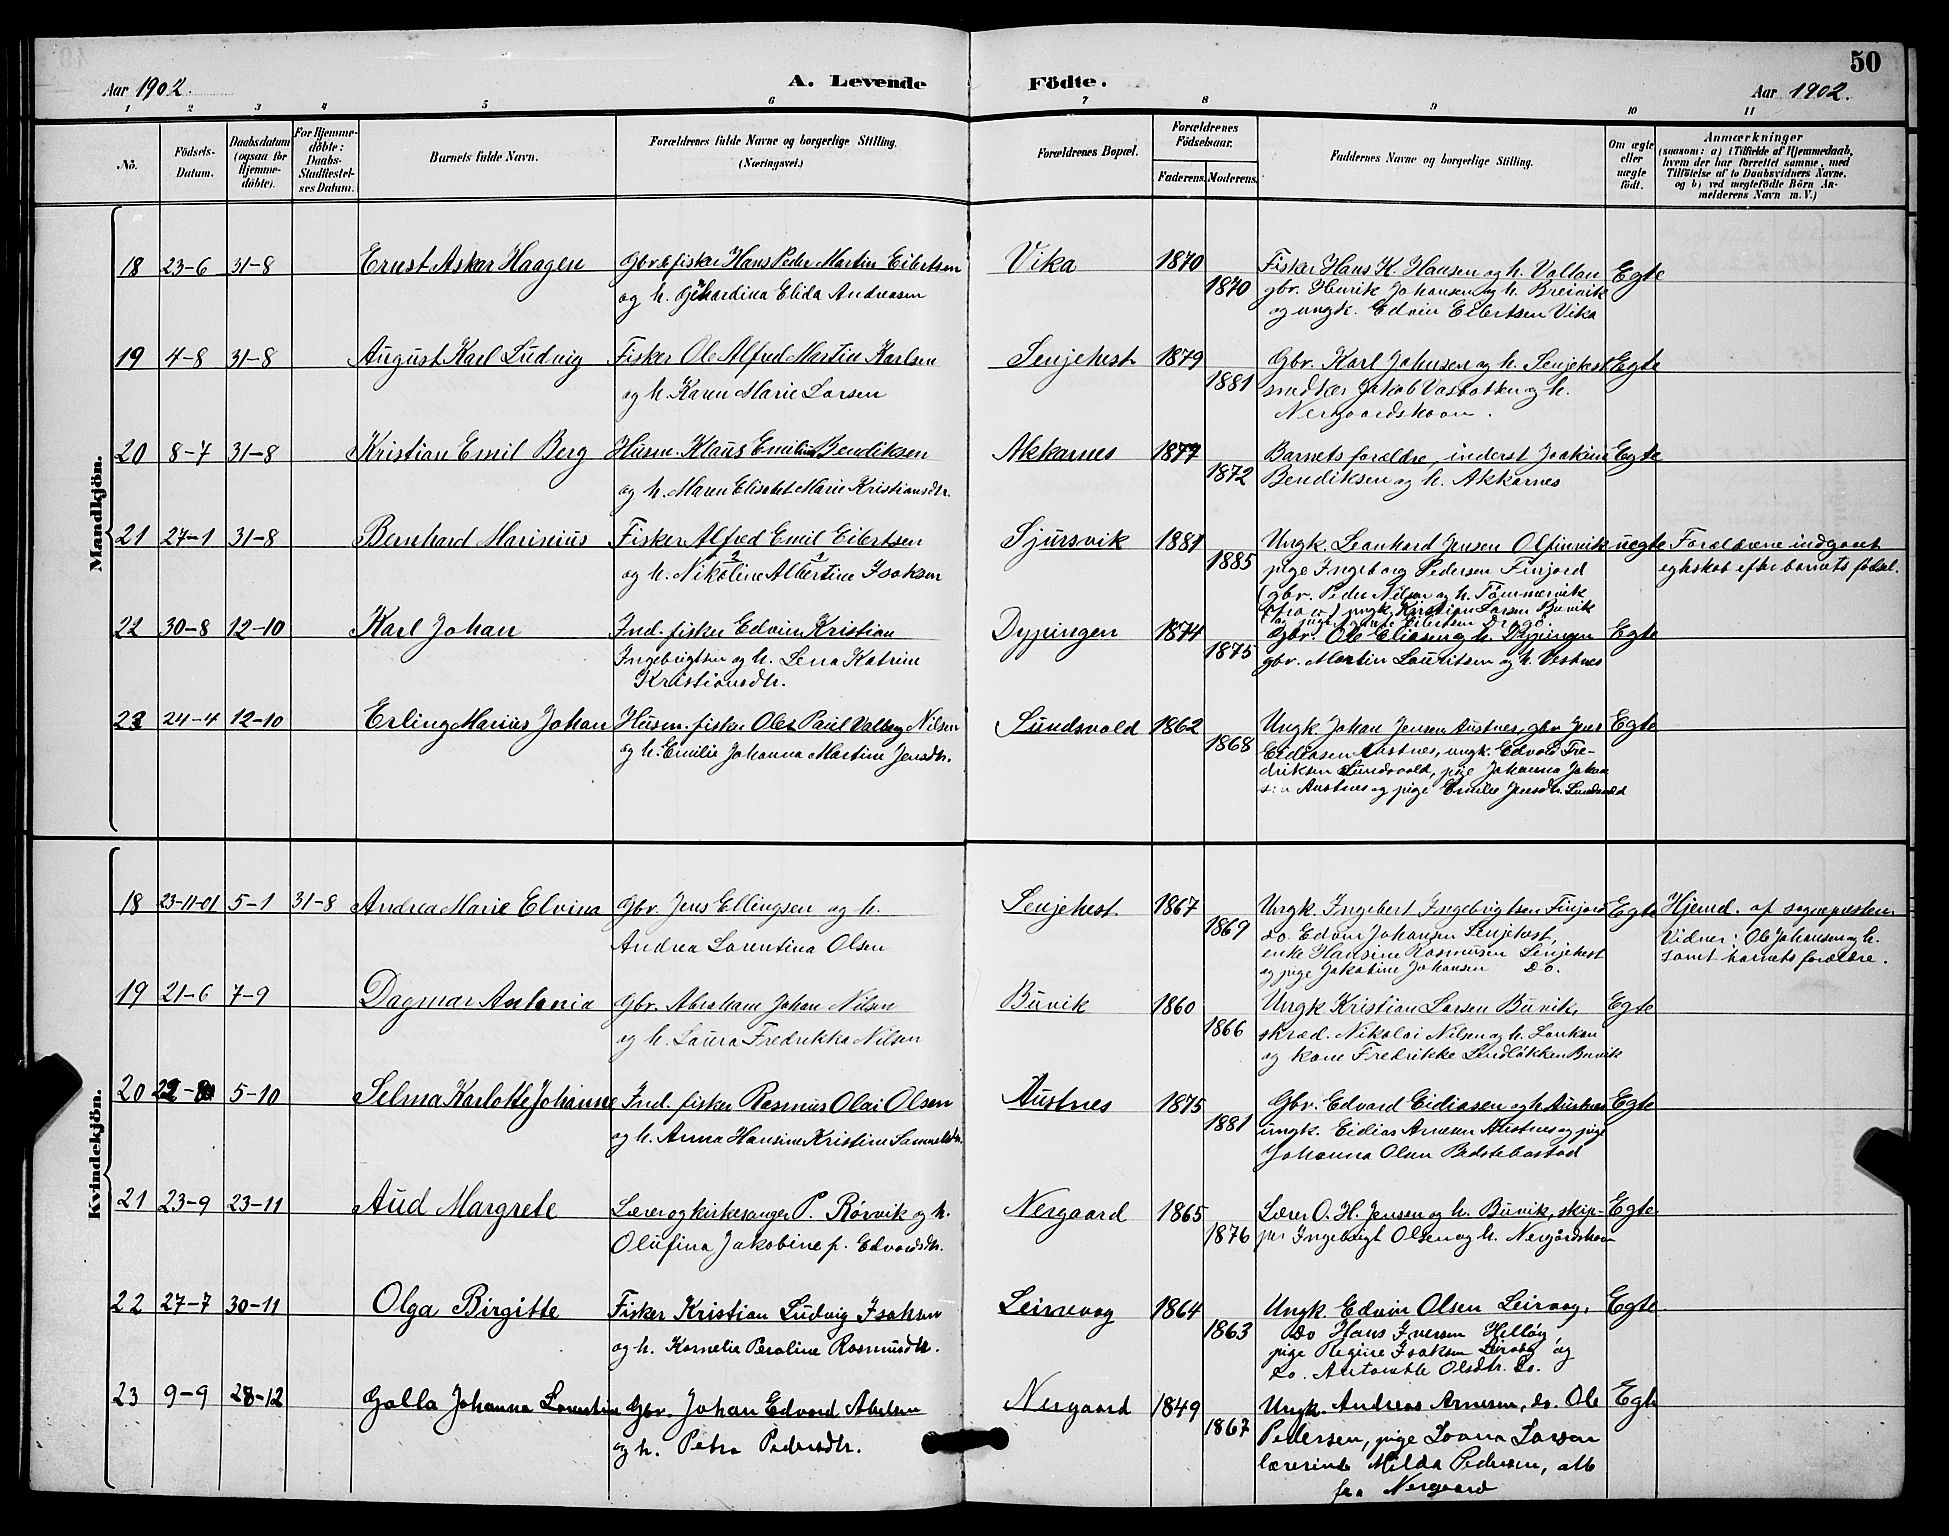 50
Aar 1902. A. Levende Födte. Aar 1902.
1 2 3 4 5 6 7 8 9 10 11
No. Födsels-Datum. Daabsdatum (ogsaa for Hjemmedöbte). For Hjemmedöbte: Daabs-Stadfæstelses Datum. Barnets fulde Navn. Forældrenes fulde Navne og borgerlige Stilling. (Næringsvei.) Forældrenes Bopæl. Forældrenes Födselsaar. Faderens. Moderens. Faddernes Navne og borgerlige Stilling. Om ægte eller uægte födt. Anmærkninger (saasom: a) i Tilfælde af Hjemmedaab, hvem der har forrettet samme, med Tilföielse af to Daabsvidners Navne, og b) ved uægtefödte Börn Anmelderens Navn m.V.)
Mandkjön.
18 23-6 31-8 Ernst Askar Haagen Gbr. & fisker Hans Peder Martin Eibertsen Vika 1870 Fisker Hans K. Hansen og h. Vollan Egte
og h. Elida Andreasen 1870 gbr. Henrik Johansen og h. Breivik
og ungk. Edvin Eibertsen Vika
19 4-8 31-8 August Karl Ludvig Fisker Ole Alfred Martin Karlsen Senjehest 1879 Gbr. Karl Johnsen og h. Senjehest Egte
og h. Karen Marie Larsen 1881 snedker Jakob Vasbotten og h.
20 8-7 31-8 Kristian Emil Berg Husm. Klaus Emilius Bendiksen Akkarnes 1877 Barnets forældre, inderst Joakim Egte
og h. Maren Elisabet Marie Kristiansdtr. 1872 Bendiksen og h. Akkarnes
21 27-1 31-8 Bernhard Marinius Fisker Alfred Emil Eilertsen Sjursvik 1881 Ungk. Leonhard Jensen Olfinvik uegte Forældrene indgaaet
og h. Nikoline Albertine Isaksen 1885 pige Ingeborg Pedersen Finjord egteskab efter barnets fødsel.
gbr. Peder Nilsen og h. Tømmervik
ungk. Kristian Larsen Buvik
22 30-8 12-10 Karl Johan Ind. fisker Edvin Kristian Dypingen 1874 Gbr. Ole Eliasen og h. Dypingen Egte
Ingebrigtsen og h. Lena Katrine 1875 gbr. Martin Lauritsen og h. Vestnes
Kristiansdtr.
23 24-4 12-10 Erling Marius Johan Husm. fisker Oles Paul Valberg Nilsen Sundsvold 1862 Ungk. Johan Jensen Austnes, gbr. Jens Egte
og h. Emilie Johanna Martine Jensdtr. 1868 Eidiasen Austnes, ungk. Edvald Fre-
driksen Sundsvold, pige Johanna Johan
sen Austnes og pige Emilie Jensdtr. Sundsvold
Kvindekjön.
18 23-11-01 5-1 31-8 Andrea Marie Elvina Gbr. Jens Ellingsen og h. Senjehest 1867 Ungk. Ingebert Ingebrigtsen Finjord Egte Hjemd. af sognepresten
Andrea Lorentina Olsen 1869 do. Edvin Johansen Senjehest, Vidner: Ole Johansen og h.
enke Hansine Rasmussen Senjehest samt barnets forældre.
og pige Jakobine Johansen do.
19 21-6 7-9 Dagmar Antonia Gbr. Abraham Johan Nilsen Buvik 1860 Ungk Kristian Larsen Buvik, Egte
og h. Laura Fredrikka Nilsen 1866 skræd. Nikolai Nilsen og h. Lankan
og kone Fredrikke Lindløkken Buvik
20 5-10 Selma Karlotte Johanne Ind. fisker Rasmus Olai Olsen Austnes 1875 Gbr. Edvard Eidiasen og h. Austnes Egte
og h. Anna Hansine Kristine Samuelsdtr. 1881 ungk. Eidias Arnesen Austnes og pige
Johanna Olsen Bedstebostad
21 23-9 23-11 Aud Margrete Lærer og kirkesanger P. Rørvik og h. Nergaard 1865 Lærer O. H. Jensen og h. Buvik, skip- Egte
Olufina Jakobine f. Edvardsdtr. 1876 per Ingebrigt Olsen og h. Nergårdshavn
22 27-7 30-11 Olga Birgitte Fisker Kristian Ludvig Isaksen Leirevag 1864 Ungk. Edvin Olsen Leirvag, Egte
og h. Kornelia Peroline Rasmusdtr. 1863 do Hans Iversen Hilløy,
pige Regine Isaksen og
do. Olsdtr. do.
23 9-9 28-12 Galla Johanna Lorentine Gbr. Johan Edvard Abelsen Nergaard 1849 Ungk. Andreas Arnesen, do. Ole Egte
og h. Petra Pedersdtr. 1867 Pedersen, pige Loona Larsen
lærerinde Milda Pedersen, alle
fra Nergaard